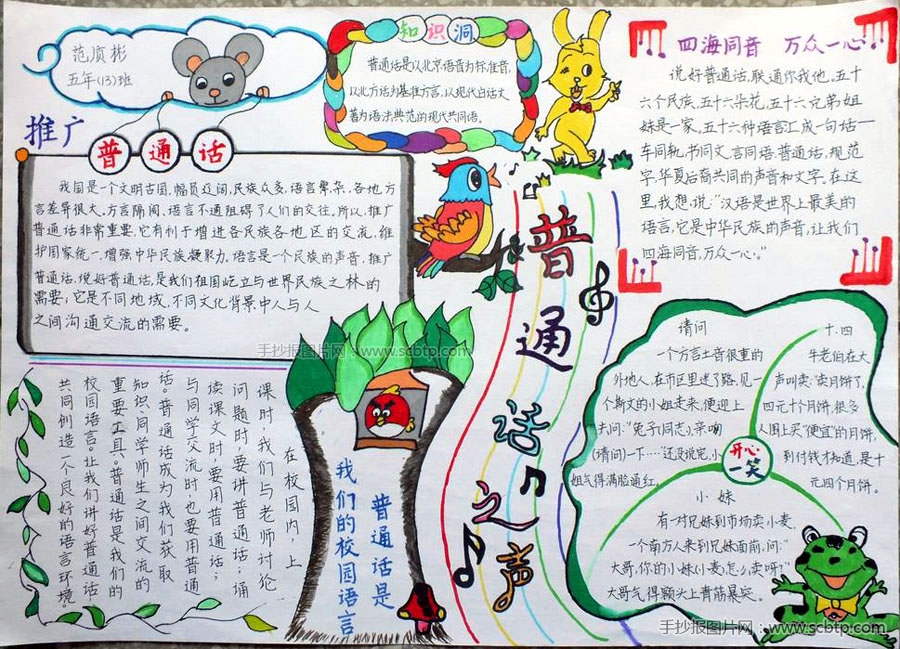 范质彬
五年(13)班
推广
普通话
我国是一个文明古国，幅员辽阔，民族众多，语言繁杂，各地方
言差异很大，方言隔阂、语言不通阻碍了人们的交往。所以，推广
普通话非常重要，它有利于增进各民族各地区的交流，维
护国家统一，增强中华民族凝聚力，语言是一个民族的声音，推广
普通话，说好普通话，是我们祖国屹立与世界民族之林的
需要；它是不同地域，不同文化背景中人与人
之间沟通交流的需要。
知识洞
普通话是以北京语音为标准音，
以北方话为基准方言，以现代白话文
著为语法典范的现代共同语。
四海同音 万众一心
说好普通话，联通你我他，五十
六个民族，五十六朵花，五十六兄弟姐
妹是一家，五十六种语言汇成一句话——
车同轨，书同文，言同语，普通话，规范
字，华夏后裔共同的声音和文字。在这
里，我想说："汉语是世界上最美的
语言，它是中华民族的声音，让我们
四海同音，万众一心。"
普通话之声
在校园内，上
课时，我们与老师讨论
问题时，要讲普通话；诵
读课文时，要用普通话；
与同学交流时，也要用普通
话。普通话成为我们获取
知识，同学师生之间交流的
重要工具。普通话是我们的
校园语言。让我们讲好普通话
共同创造一个良好的语言环境。
普通话是
我们的校园语言
请问
一个方言土音很重的
外地人，在市区里迷了路，见一
个斯文的小姐走来，便迎上
去问："兔子(同志)，亲吻
(请问)一下……还没说完，小
姐气得满脸通红。
十.四
牛老伯在大
声叫卖："卖月饼了，
四元十个月饼。很多
人围上买"便宜"的月饼，
到付钱才知道，是十
元四个月饼。
开心一笑
小妹
有一对兄妹到市场卖小麦，
一个南方人来到兄妹面前，问："
大哥，你的小妹(小麦)怎么卖呀！"
大哥气得额头上青筋暴突。
手抄报图片网：www.scbtp.com
手抄报图片网：www.scbtp.com